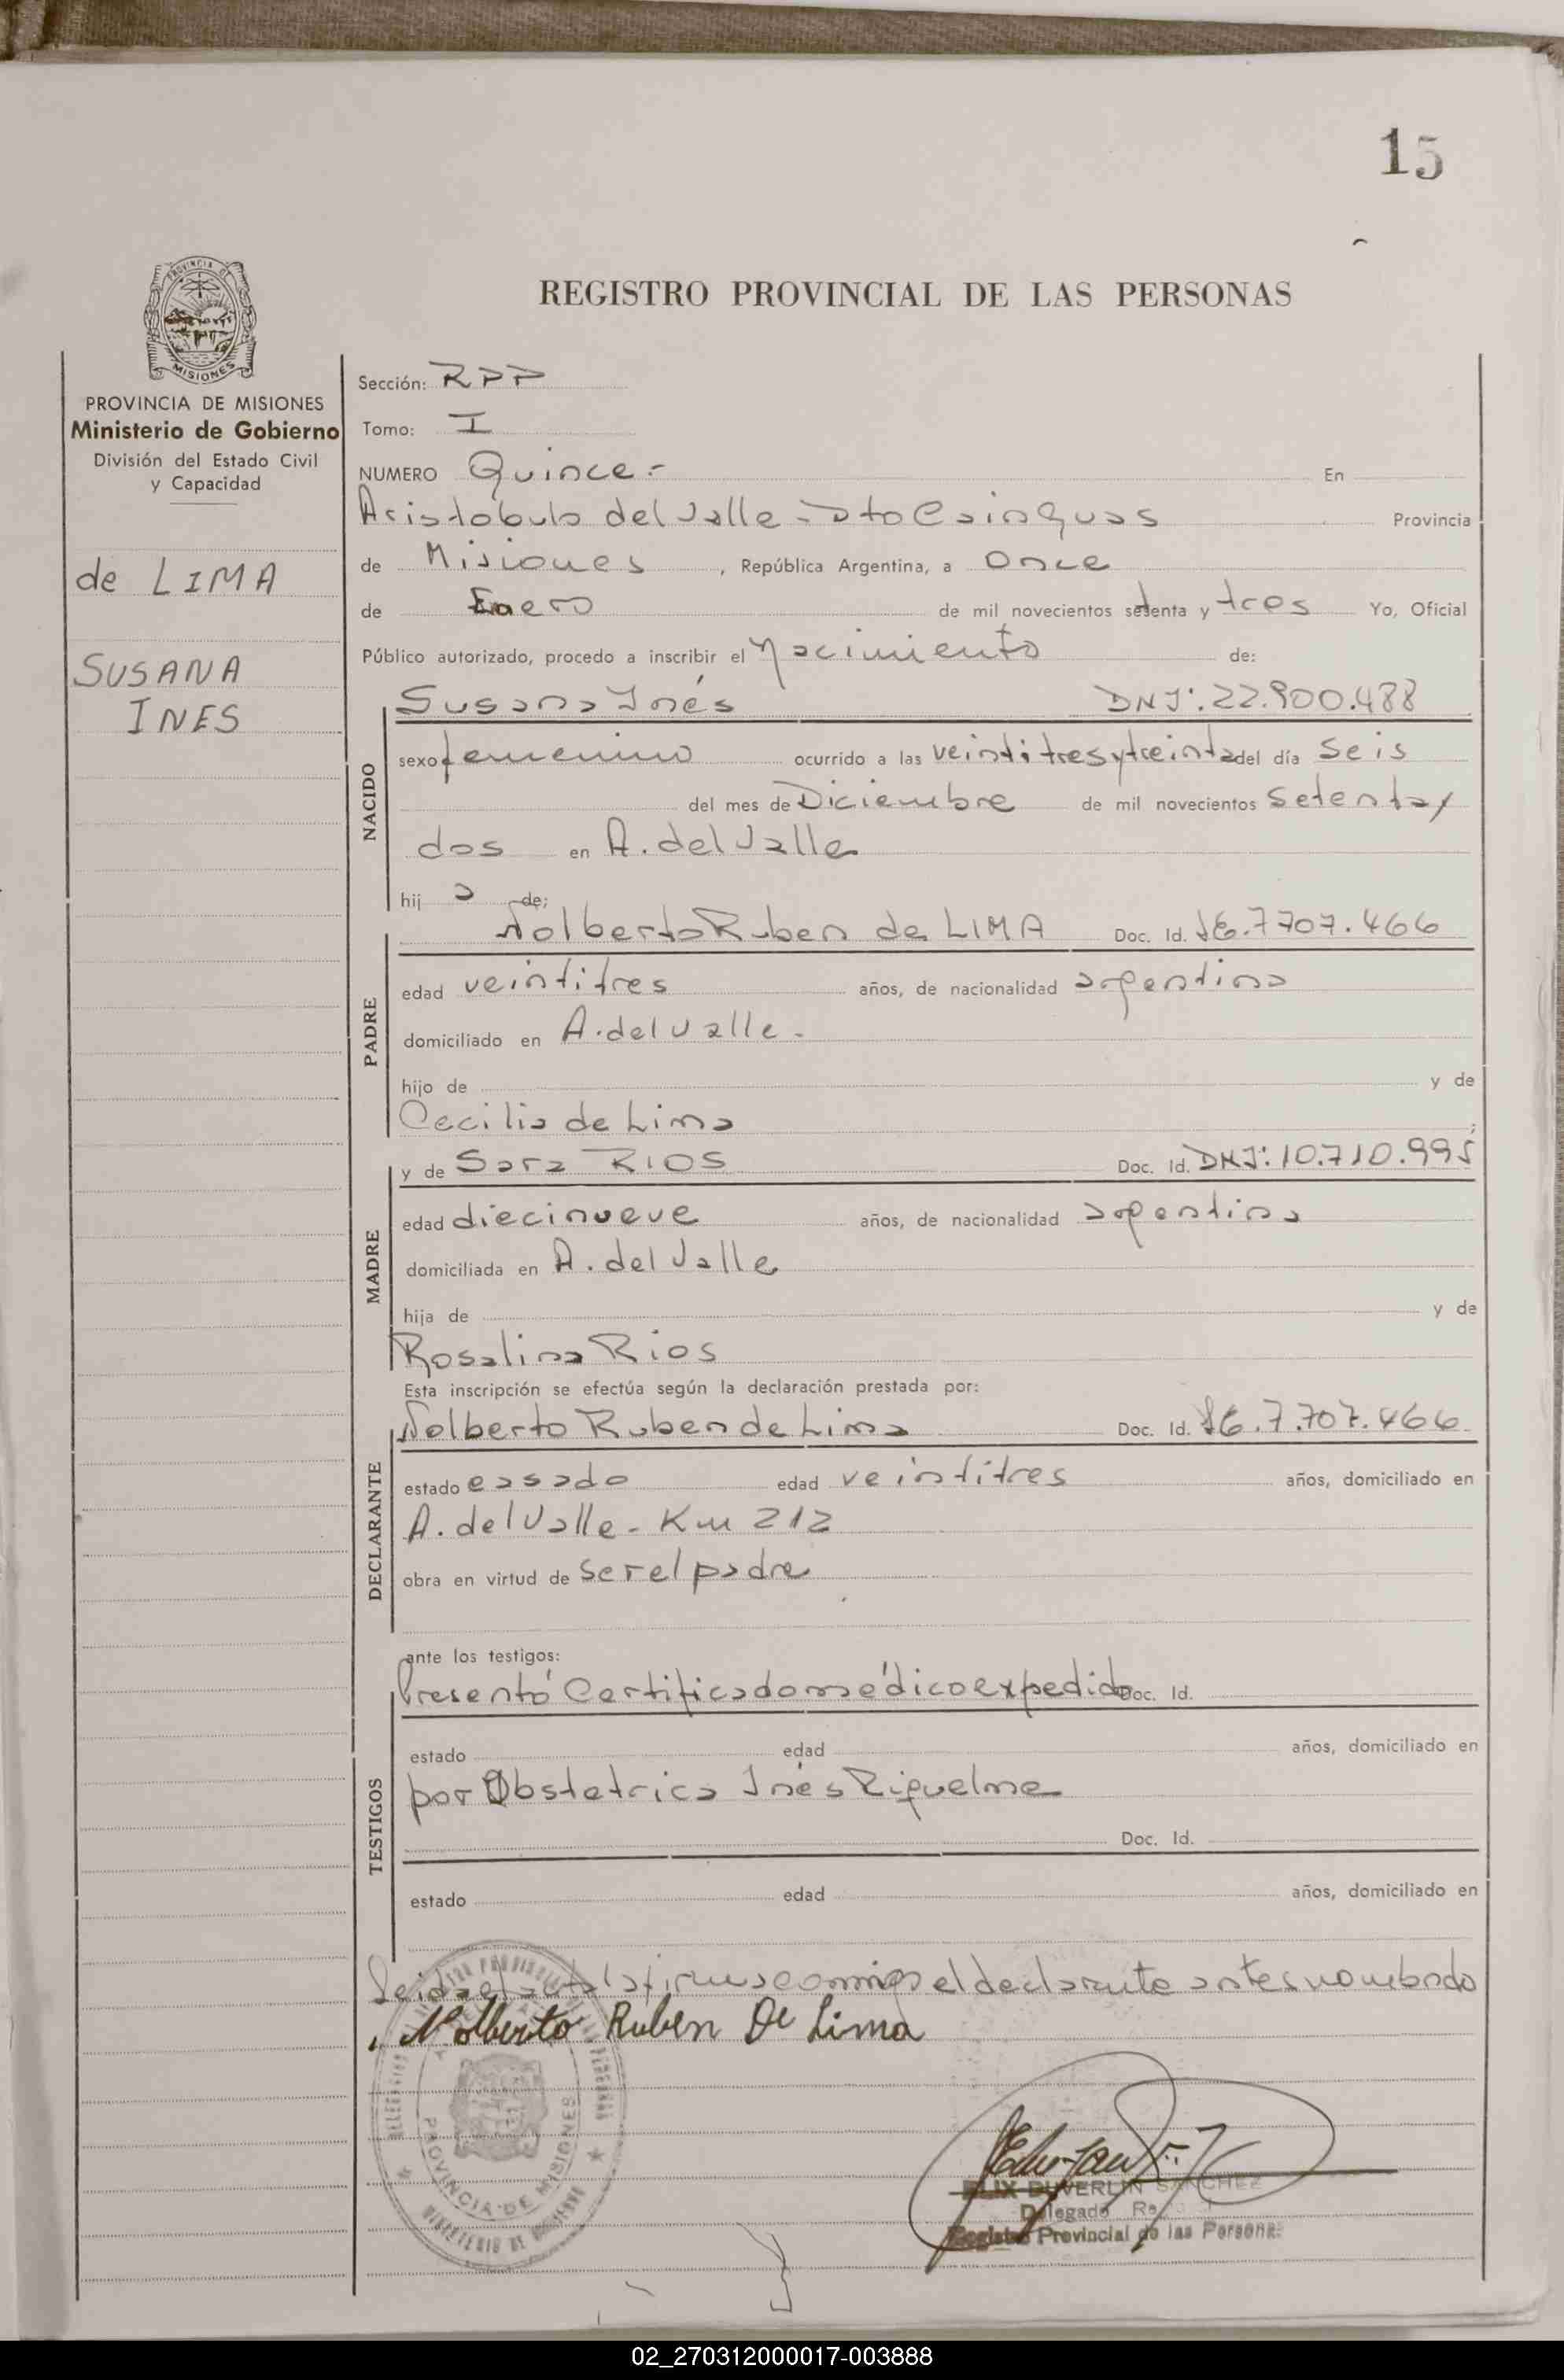 15
REGISTRO PROVINCIAL DE LAS PERSONAS
PROVINCIA DE
MISIONES
PROVINCIA DE MISIONES
Ministerio de Gobierno
División del Estado Civil
y Capacidad
de LIMA
SUSANA
INES
Sección: RPP
Tomo: I
NUMERO Quince.- En
Aristóbulo del Valle - Dto Cainguas Provincia
de Misiones, República Argentina, a Once
de Enero de mil novecientos setenta y tres Yo, Oficial
Público autorizado, procedo a inscribir el Nacimiento de:
NACIDO
Susana Inés DNI: 22.900.488
sexo femenino ocurrido a las veintitres y treinta del día seis
del mes de Diciembre de mil novecientos setenta y
dos en A. del Valle
hij a de;
PADRE
Nolberto Ruben de LIMA Doc. Id. 7707.466
edad veintitres años, de nacionalidad argentina
domiciliado en A. del Valle -
hijo de y de
Cecilia de Lima ;
MADRE
y de Sara RIOS Doc. Id. DNI: 10.710.995
edad diecinueve años, de nacionalidad argentina
domiciliada en A. del Valle
hija de y de
Rosalina Rios
Esta inscripción se efectúa según la declaración prestada por:
DECLARANTE
Nolberto Ruben de Lima Doc. Id. 7.707.466
estado casado edad veintitres años, domiciliado en
A. del Valle - Km 212
obra en virtud de ser el padre
ante los testigos:
TESTIGOS
Presentó Certificado médico expedido Doc. Id.
estado edad años, domiciliado en
por Obstetrica Inés Riquelme
Doc. Id.
estado edad años, domiciliado en
Leida el acta la firma conmigo el declarante antes nombrado
Nolberto Ruben De Lima
PROVINCIA DE MISIONES
MINISTERIO DE GOBIERNO
FELIX DUVERLIN SANCHEZ
Delegado
Registro Provincial de las Personas
02_270312000017-003888